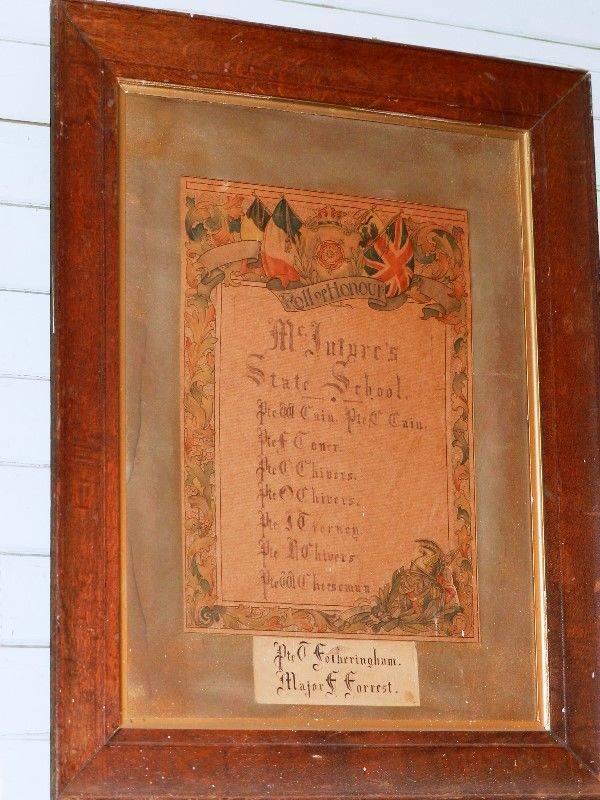 Roll of Honour
Mc Intyre's
State School.
Pte W Cain. Pte C Cain.
Pte F Toner.
Pte C Chivers.
Pte O Chivers.
Pte J Tierney.
Pte R Chivers
Pte W Cheeseman
Pte T Fotheringham.
Major F Forrest.